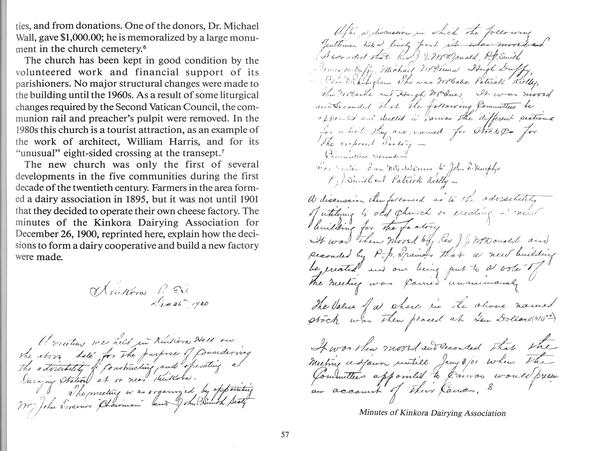 ties, and from donations. One of the donors, Dr. Michael
Wall, gave $1,000.00; he is memorialized by a large monu-
ment in the church cemetery.⁶
The church has been kept in good condition by the
volunteered work and financial support of its
parishioners. No major structural changes were made to
the building until the 1960s. As a result of some liturgical
changes required by the Second Vatican Council, the com-
munion rail and preacher's pulpit were removed. In the
1980s this church is a tourist attraction, as an example of
the work of architect, William Harris, and for its
"unusual" eight-sided crossing at the transept.⁷
The new church was only the first of several
developments in the five communities during the first
decade of the twentieth century. Farmers in the area form-
ed a dairy association in 1895, but it was not until 1901
that they decided to operate their own cheese factory. The
minutes of the Kinkora Dairying Association for
December 26, 1900, reprinted here, explain how the deci-
sions to form a dairy cooperative and build a new factory
were made.
Kinkora P.E.I.
Dec 26th 1900
A meeting was held in Kinkora Hall on
the above date for the purpose of considering
the advisability of constructing and operating a
Dairying Station at or near Kinkora.
The meeting was organized by appointing
Mr. John Trainor Chairman and John P. Smith Secty
57
After a discussion in which the following
Gentlemen took a lively part it was moved and
seconded that Rev J.J. McDonald, P.J. Smith
Duffy, Michael McKenna Hugh Duffy,
Thomas McCabe Patrick Kelly,
and Hugh McCue. It was moved
and seconded that the following Committee be
appointed and directed to canvas the different sections
for which they are named for Stock &c for
the proposed Factory
Committees named
to John F. Murphy
P.J. Smith and Patrick Kelly
A discussion then followed as to the advisability
of utilizing the old church or erecting a new
building for the factory
It was then moved by Rev J.J. McDonald and
seconded by P.J. Trainor that a new building
be erected and on being put to a vote of
the meeting was carried unanimously
The Value of a share in the above named
stock was then placed at Ten Dollars ($10.00)
It was then moved and seconded that the
meeting adjourn untill Jany 3/01 when the
Committees appointed to Canvas would present
an account of their Canvas. 8
Minutes of Kinkora Dairying Association